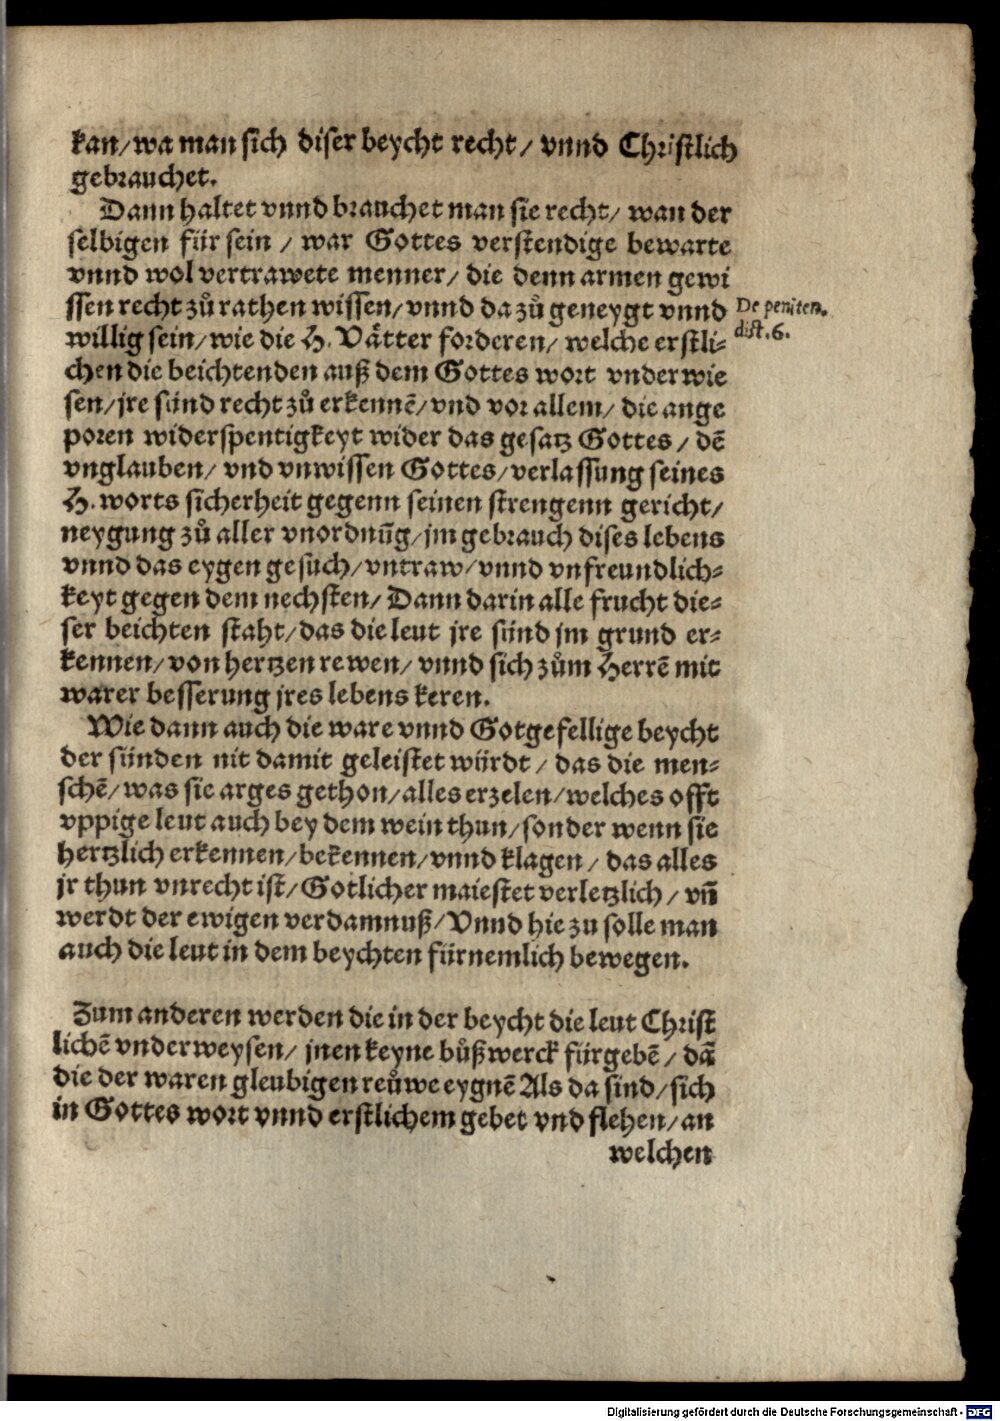 kan/wa man sich diser beycht recht/ vnnd Christlich
gebrauchet.
Dann haltet vnnd brauchet man sie recht/ wan der
selbigen für sein / war Gottes verstendige bewarte
vnnd wol vertrawete menner/ die denn armen gewi
ssen recht zů rathen wissen/ vnnd da zů geneygt vnnd
willig sein/ wie die H. Vätter forderen/ welche erstli-
chen die beichtenden auß dem Gottes wort vnderwie
sen/ jre sünd recht zů erkennē/ vnd vor allem/ die ange
poren widerspentigkeyt wider das gesatz Gottes / dē
vnglauben/ vnd vnwissen Gottes/ verlassung seines
H. worts sicherheit gegenn seinen strengenn gericht/
neygung zů aller vnordnūg/ jm gebrauch dises lebens
vnnd das eygen gesuch/ vntraw/ vnnd vnfreundlich-
keyt gegen dem nechsten/ Dann darin alle frucht die-
ser beichten staht/ das die leut jre sünd jm grund er-
kennen/ von hertzen rewen/ vnnd sich zům Herrē mit
warer besserung jres lebens keren.
Wie dann auch die ware vnnd Gotgefellige beycht
der sünden nit damit geleistet würdt / das die men-
schē/ was sie arges gethon/ alles erzelen/ welches offt
vppige leut auch bey dem wein thun/ sonder wenn sie
hertzlich erkennen/ bekennen/ vnnd klagen / das alles
jr thun vnrecht ist/ Gotlicher maiestet verletzlich / vn̄
werdt der ewigen verdamnuß/ Vnnd hie zu solle man
auch die leut in dem beychten fürnemlich bewegen.
Zum anderen werden die in der beycht die leut Christ
lichē vnderweysen/ jnen keyne bůßwerck fürgebē / dā
die der waren gleubigen reůwe eygnē Als da sind/ sich
in Gottes wort vnnd erstlichem gebet vnd flehen/ an
welchen
De peniten.
dist. 6.
Digitalisierung gefördert durch die Deutsche Forschungsgemeinschaft - DFG